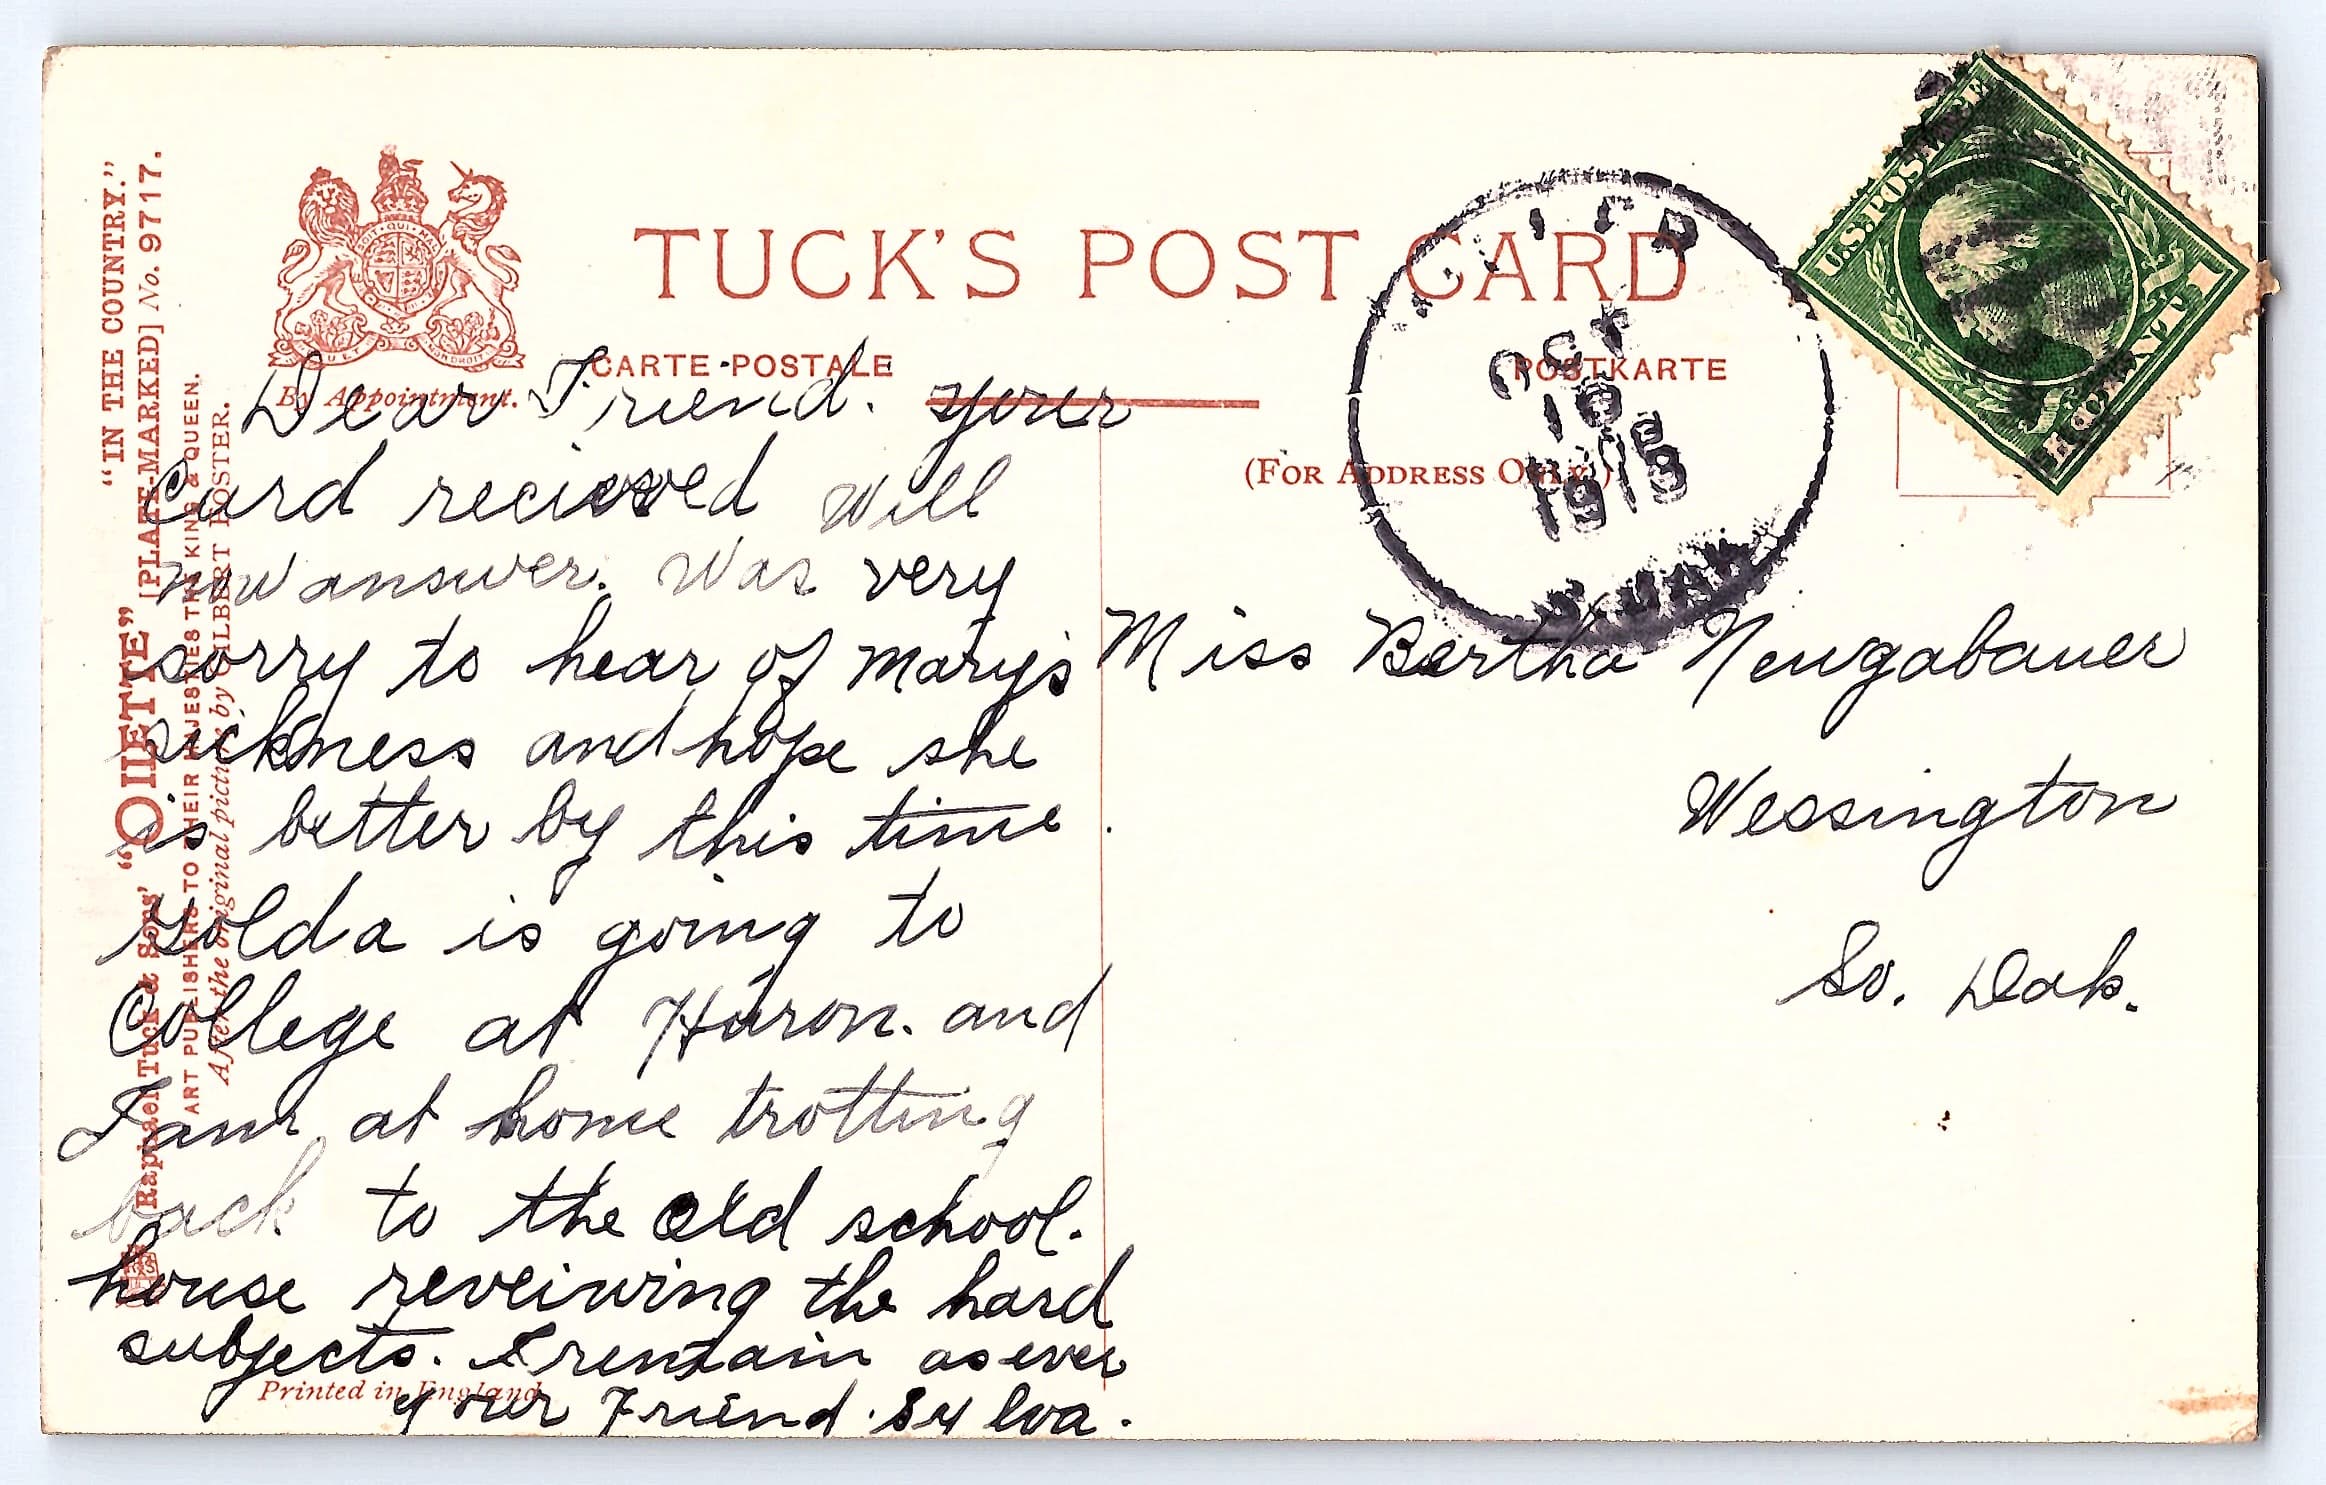 "IN THE COUNTRY."
Raphael Tuck & Sons' "OILETTE" [PLATE-MARKED] No. 9717.
ART PUBLISHERS TO THEIR MAJESTIES THE KING & QUEEN.
After the original picture by GILBERT FOSTER.
By Appointment.
TUCK'S POST CARD
CARTE POSTALE
POSTKARTE
(FOR ADDRESS ONLY.)
U.S. POSTAGE
1 CENT 1
OCT
18
1913
S. DAK.
Dear Friend. your
Card recieved will
now answer. Was very
sorry to hear of Mary's
sickness and hope she
is better by this time.
Golda is going to
College at Huron. and
I am at home trotting
back to the old school.
house reveiwing the hard
subjects. I remain as ever
your Friend. Sylva.
Miss Bertha Neugabauer
Wessington
So. Dak.
Printed in England